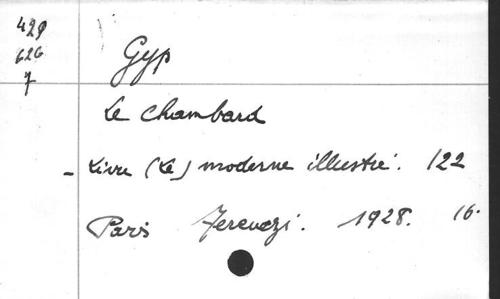 429
626
7
Gyp
Le Chambard
- Livre (Le) moderne illustré. 122
Paris Ferenczi. 1928. 16.